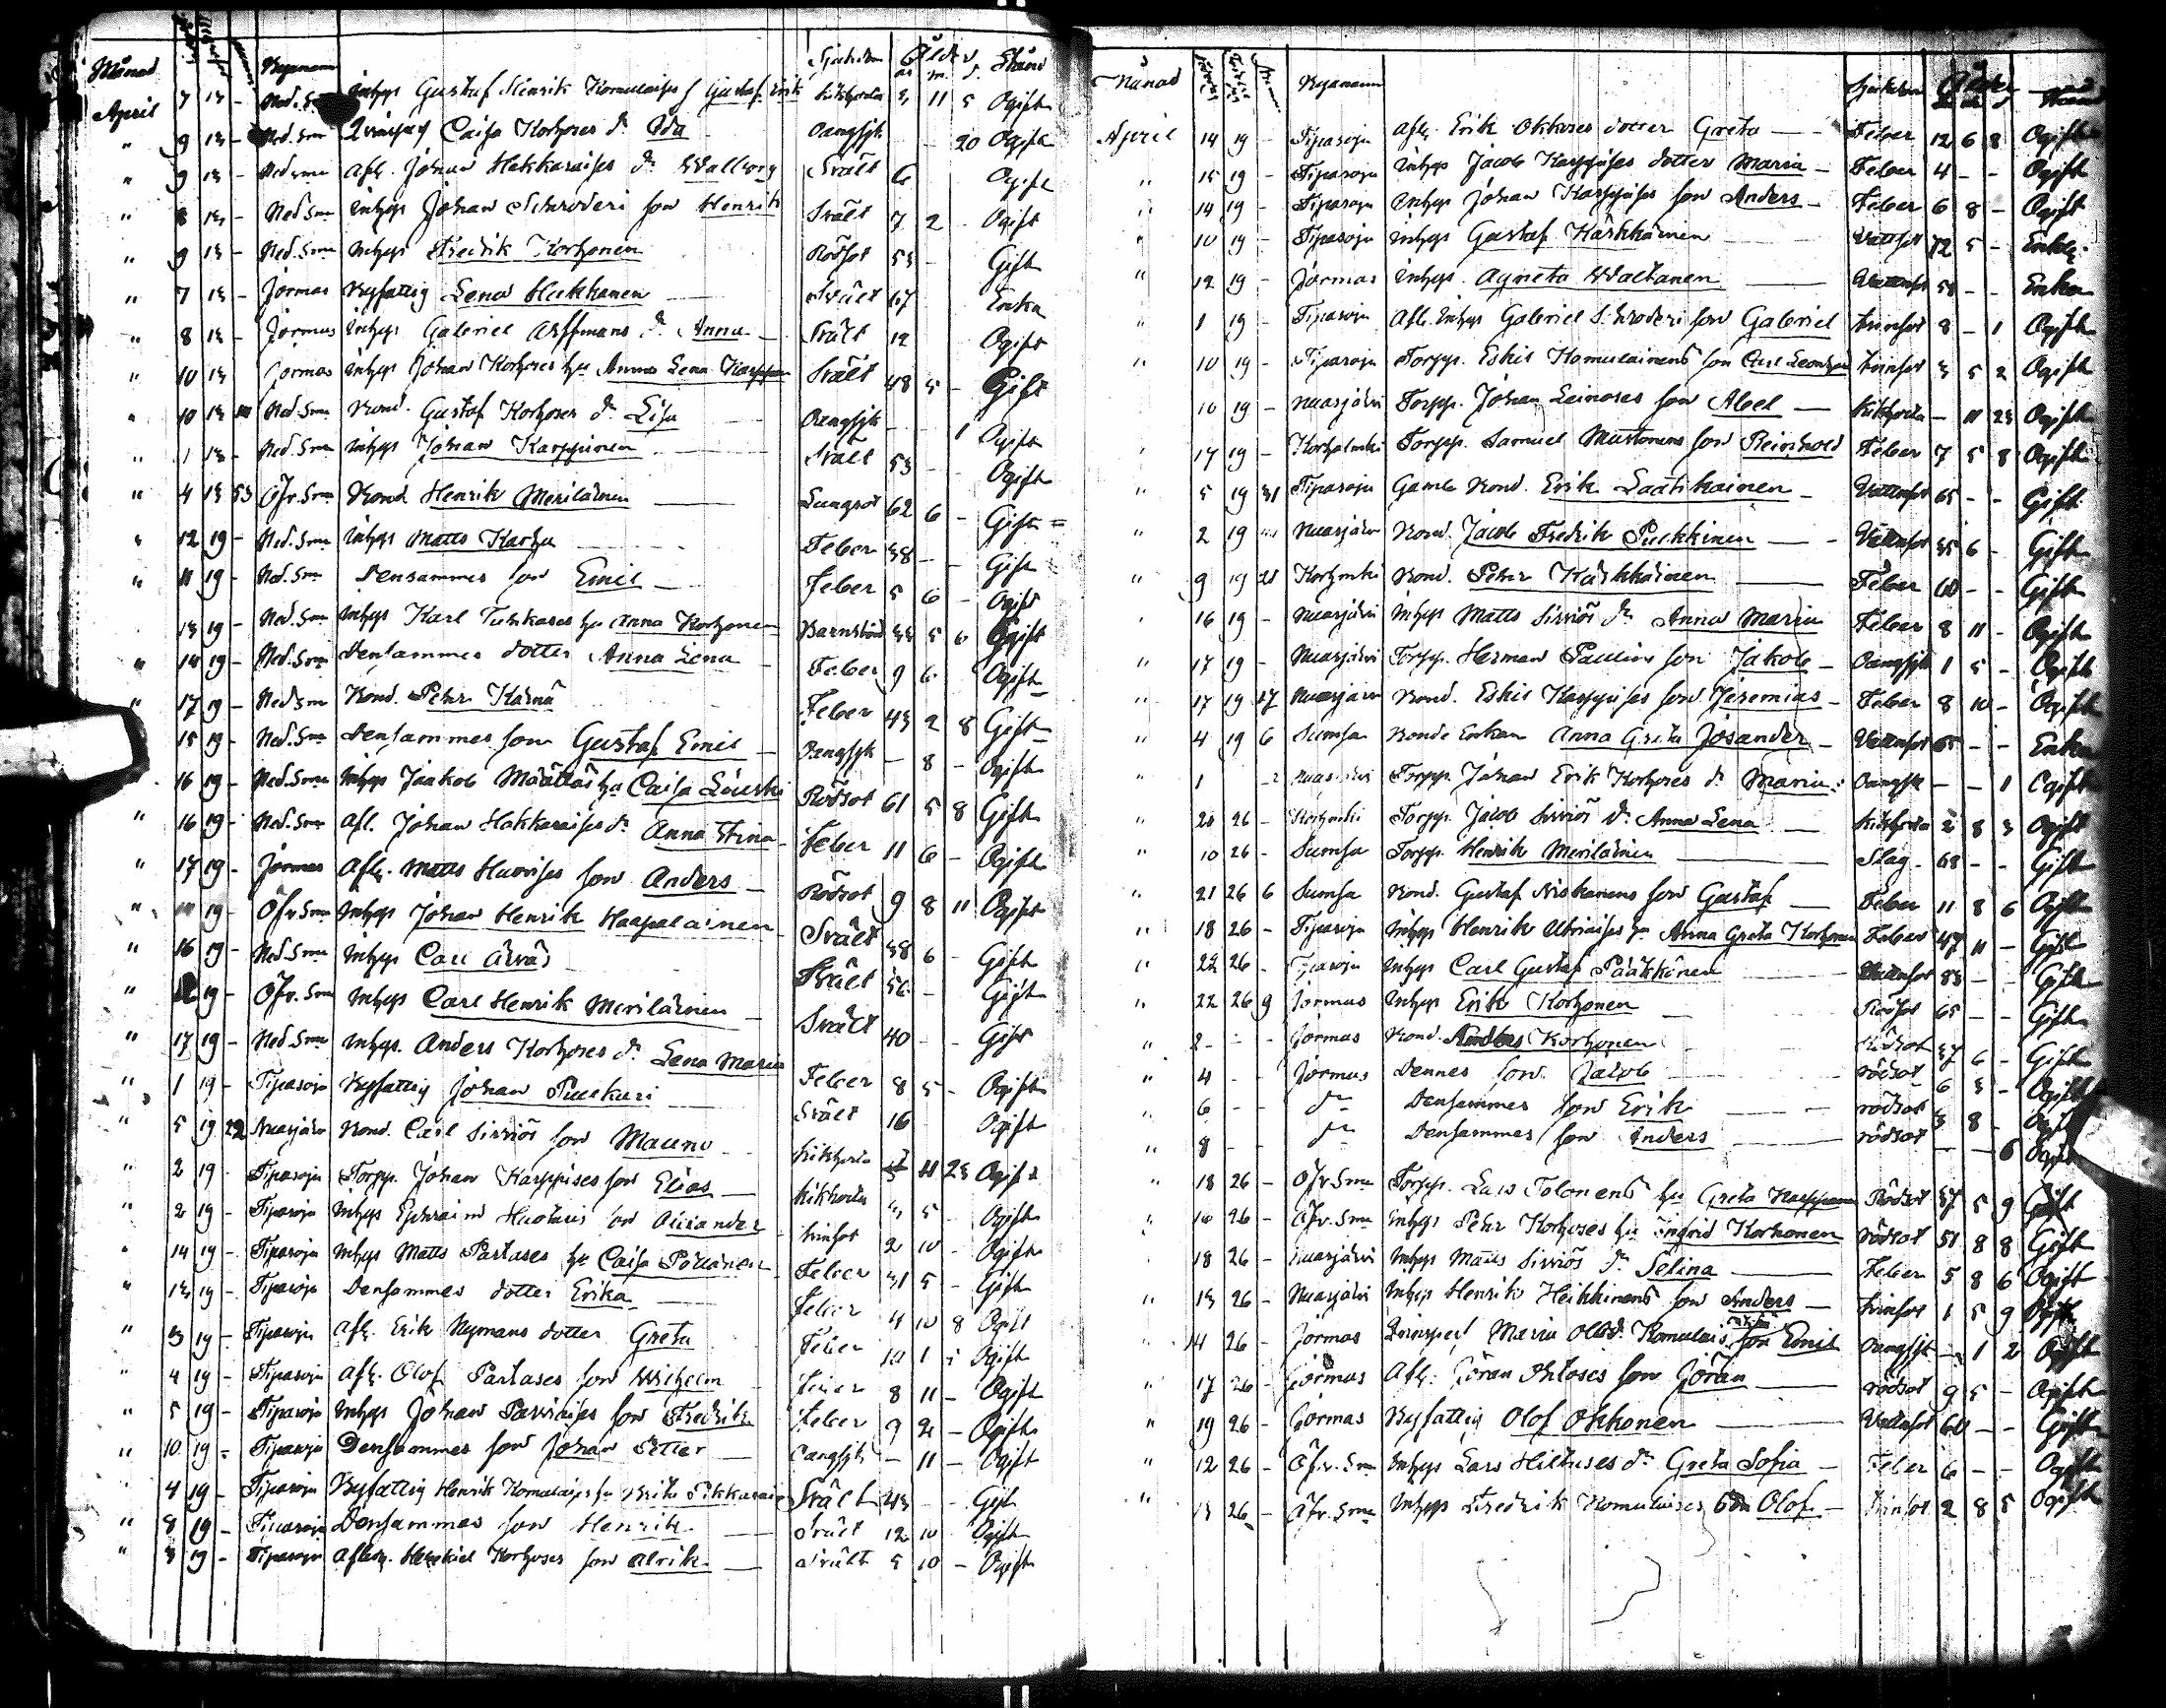 Månad Byanamn Sjukdom Ålder Stånd
år m. d.
April 7 13 - Ned. Smo Inhys Gustaf Henrik Komulaises s. Gustaf Erik Kikhosta 3 11 5 Ogift
" 9 13 - Ned. Smo Qvinsp. Caisa Korhoses dr Ida Oangsjk - - 20 Ogift
" 9 13 - Ned Smo Afl. Johan Hakkaraises dr Wallborg Svält 6 Ogift
" 8 13 - Ned Smo Inhys Johan Schroderi son Henrik Svält 7 2 - Ogift
" 9 13 - Ned. Smo Inhys Fredrik Korhonen Rödsot 53 - Gift
" 7 13 - Jormas Byfattig Lena Hukkanen Svält 67 Enka
" 8 13 - Jormas Inhys Gabriel Arffmans dr Anna Svält 12 Ogift
" 10 13 Jormas Inhys Johan Korhoses hu Anna Lena Karppinen Svält 48 5 - Gift
" 10 13 Ned. Smo Bond. Gustaf Korhoses dr Lisa Oangsjk - - 1 Ogift
" 1 13 - Ned. Smo Inhys Johan Karppinen Svält 53 - - Ogift
" 4 13 53 Öfv. Smo Bond Henrik Meriläinen Lungsot 62 6 - Gift
" 12 19 - Ned. Smo Inhys Matts Karhu Feber 38 - - Gift
" 11 19 - Ned. Smo Densammes son Emil Feber 5 6 - Ogift
13 19 - Ned. Smo Inhys Karl Tuhkases hu Anna Korhonen Barnsbörd 33 5 6 Gift
" 14 19 - Ned. Smo Densammes dotter Anna Lena Feber 9 6 Ogift
" 17 19 - Ned Smo Bond. Pehr Kärnä Feber 43 2 8 Gift
15 19 - Ned. Smo Densammes son Gustaf Emil Oangsjk - 8 - Ogift
16 19 - Ned. Smo Inhys Jaakob Määttäs hu Caisa Leinski Rödsot 61 5 8 Gift
" 16 19 - Ned. Smo Afl. Johan Hakkaraises dr Anna Stina Feber 11 6 - Ogift
" 17 19 - Jormas Afl. Matts Huovises son Anders Rödsot 9 8 11 Ogift
" 19 - Öfv. Smo Inhys Johan Henrik Haapalainen Svält 38 6 - Gift
" 16 19 - Ned. Smo Inhys Carl Ärväs Svält 56 - Gift
" 19 - Öfv. Smo Inhys Carl Henrik Meriläinen Svält 40 - - Gift
" 17 19 - Ned. Smo Inhys. Anders Korhoses dr Lena Maria Feber 8 5 - Ogift
" 1 19 - Tipasoja Byfattig Johan Puukuri Svält 16 Ogift
" 5 19 22 Nuasjärvi Bond. Carl Sirviös son Mauno Kikhosta 11 23 Ogift
" 2 19 - Tipasoja Torpp. Johan Karppises son Elias Kikhosta 3 5 Ogift
" 2 19 - Tipasoja Inhys Ephraim Huotaris son Alexander Trinsot 2 10 - Ogift
" 14 19 - Tipasoja Inhys Matts Partases hu Caisa Pöllänen Feber 31 5 - Gift
" 13 19 - Tipasoja Densammes dotter Erika Feber 4 10 8 Ogift
" 3 19 - Tipasoja Afl. Erik Nymans dotter Greta Feber 10 1 - Ogift
" 4 19 - Tipasoja Afl. Olof Partases son Wilhelm Feber 8 11 - Ogift
" 5 19 - Tipasoja Inhys Johan Parviaises son Fredrik Feber 9 2 - Ogift
" 10 19 - Tipasoja Densammes son Johan Petter Oangsjk - 11 - Ogift
4 19 - Tipasoja Byfattig Henrik Komulaises hu Brita Pikkarainen Svält 43 - - Gift
" 8 19 - Tipasoja Densammes son Henrik Svält 12 10 Ogift
" 3 19 - Tipasoja Afledn. Hesekiel Korhoses son Alrik Svält 5 10 - Ogift
Månad Byanamn Sjukdom Ålder Stånd
April 14 19 - Tipasoja Afl. Erik Okkoses dotter Greta Feber 12 6 8 Ogift
" 15 19 - Tipasoja Inhys Jacob Karppises dotter Maria Feber 4 - - Ogift
" 14 19 - Tipasoja Inhys Johan Karppises son Anders Feber 6 8 - Ogift
" 10 19 - Tipasoja Inhys Gustaf Kärkkäinen Vattsot 72 5 - Enkl.
" 12 19 - Jormas Inhys. Agneta Waltanen Vattensot 58 - - Enka
" 1 19 - Tipasoja Afl. Inhys Gabriel Schroderi son Gabriel Trinsot 8 - 1 Ogift
" 10 19 - Tipasoja Torpp. Eskil Komulainens son Carl Leonhard Trinsot 3 5 2 Ogift
10 19 - Nuasjärvi Torpp. Johan Leinoses son Abel Kikhosta - 11 23 Ogift
" 17 19 - Korholmki Torpp. Samuel Mustonens son Reinhold Feber 7 5 8 Ogift
" 5 19 31 Tipasoja Gamle Bond. Erik Laatikainen Vattensot 65 - - Gift
" 2 19 Nuasjärvi Bond. Jacob Fredrik Pulkkinen Vattensot 35 6 - Gift
" 9 19 21 Korhmki Bond. Pehr Kärkkäinen Feber 60 - - Gift
16 19 - Nuasjärvi Inhys Matts Sirviös dr Anna Maria Feber 8 11 - Ogift
" 17 19 - Nuasjärvi Torpp. Herman Paulins son Jakob Oangsjk 1 5 - Ogift
" 17 19 17 Nuasjärvi Bond. Eskil Karppises son Jeremias Feber 8 10 - Ogift
" 4 19 6 Sumsa Bonde Enkan Anna Greta Josander Vattensot 65 - - Enka
" 1 Nuasjärvi Torpp. Johan Erik Korhoses dr Maria Oangsjk - - 1 Ogift
" 20 26 - Korhmki Torpp. Jacob Sirviös dr Anna Lena Kikhosta 2 8 3 Ogift
" 10 26 - Sumsa Torpp. Henrik Meriläinen Slag 68 - - Gift
" 21 26 6 Sumsa Bond. Gustaf Niskanens son Gustaf Feber 11 8 6 Ogift
" 18 26 - Tipasoja Inhys Henrik Utriaises hu Anna Greta Korhonen Feber 47 11 - Gift
" 22 26 - Tipasoja Inhys Carl Gustaf Pääkkönen Vattensot 83 - - Gift
" 22 26 9 Jormas Inhys Erik Korhonen Rödsot 65 - - Gift
" 2 - - Jormas Bond. Anders Korhonen Rödsot 37 6 - Gift
" 4 - - Jormas Dennes son Jacob rödsot 6 3 - Ogift
" 6 - - dr Densammes son Erik rödsot 3 8 - Ogift
" 8 - - dr Densammes son Anders rödsot - - 6 Ogift
" 18 26 - Öfv. Smo Torpp. Lars Tolonens hu Greta Karppinen Rödsot 37 5 9 Gift
" 16 26 - Öfv. Smo Inhys Pehr Korhoses hu Ingrid Korhonen rödsot 51 8 8 Gift
18 26 - Nuasjärvi Inhys Matts Sirviös dr Selina Feber 5 8 6 Ogift
" 13 26 - Nuasjärvi Inhys Henrik Heikkinens son Anders Trinsot 1 5 9 Ogift
" 14 26 - Jormas Qvinsper Maria Olofd. Komulais. son Emil oangsjk - 1 2 Ogift
" 17 26 - Jormas Afl. Göran Ohtoses son Göran rödsot 9 5 - Ogift
" 19 26 - Jormas Byfattig Olof Okkonen Vattensot 60 - - Gift
" 12 26 - Öfv. Smo Inhys Lars Hiltuses dr Greta Sofia Feber 6 - - Ogift
" 13 26 - Öfv. Smo Inhys Fredrik Komulaises son Olof Trinsot 2 8 5 Ogift